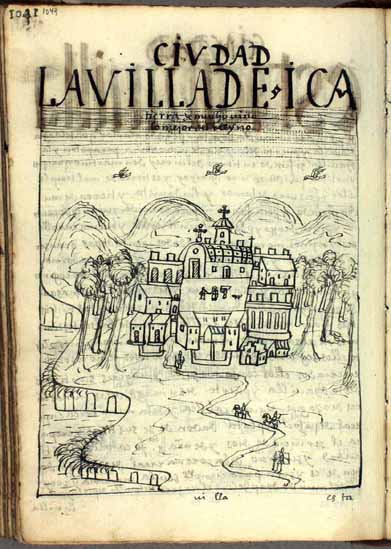 1041 1049
CIVDAD
LAVILLADE, ICA
tierra de mucho uino
lo mejor del rreyno
ui lla